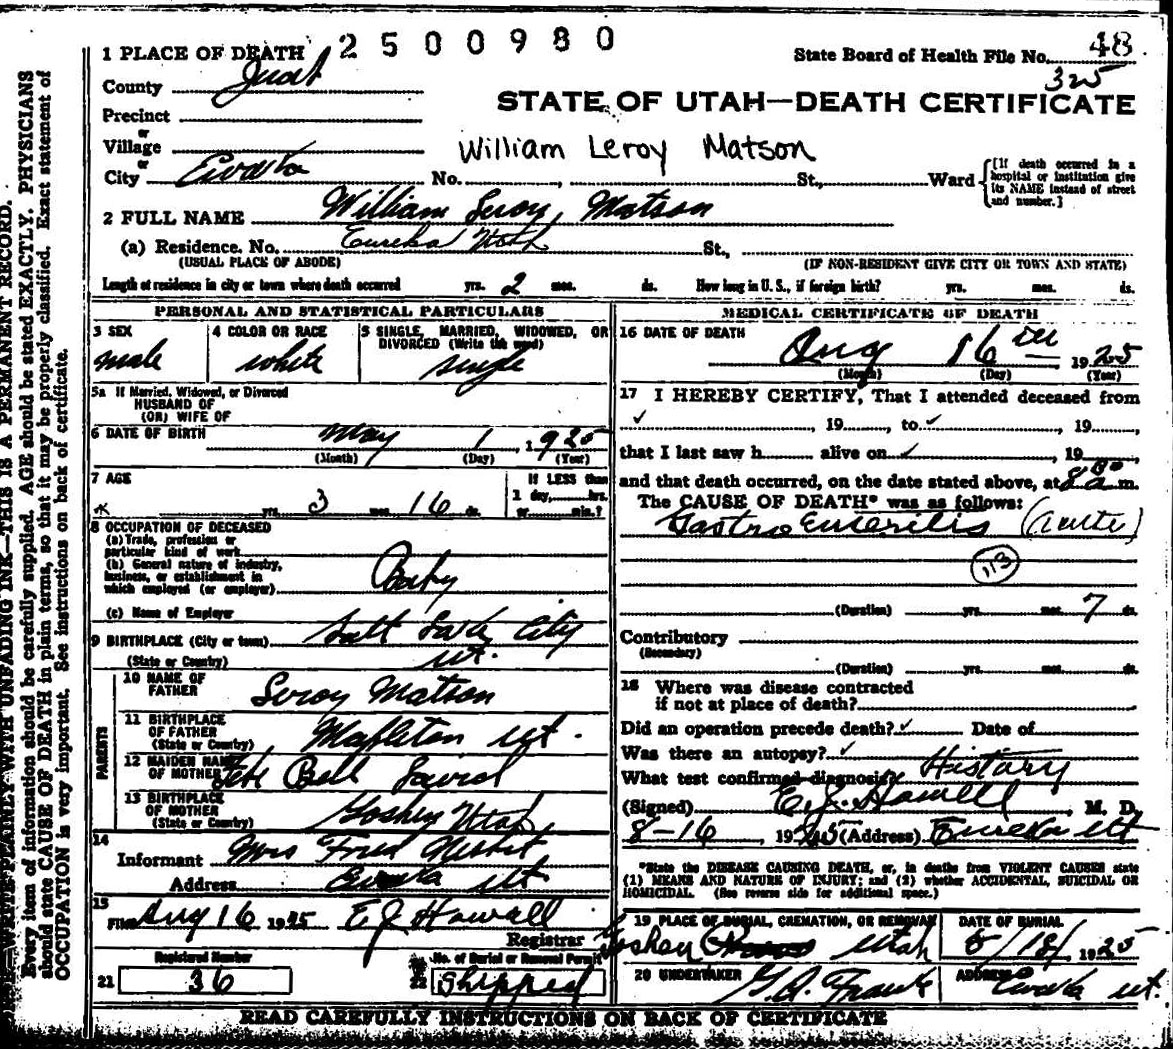 2 5 0 0 9 8 0
1 PLACE OF DEATH
State Board of Health File No. 48
325
County Juab
STATE OF UTAH—DEATH CERTIFICATE
Precinct
or
Village
William Leroy Matson
or
City Eureka No. , St., Ward
[If death occurred in a hospital or institution give its NAME instead of street and number.]
2 FULL NAME William Leroy Matson
(a) Residence. No. Eureka Utah St.,
(USUAL PLACE OF ABODE) (IF NON-RESIDENT GIVE CITY OR TOWN AND STATE)
Length of residence in city or town where death occurred yrs. 2 mos. ds. How long in U. S., if foreign birth? yrs. mos. ds.
PERSONAL AND STATISTICAL PARTICULARS
3 SEX male
4 COLOR OR RACE white
5 SINGLE, MARRIED, WIDOWED, OR DIVORCED (Write the word) single
5a If Married, Widowed, or Divorced
HUSBAND OF
(OR) WIFE OF
6 DATE OF BIRTH May 1, 1925
(Month) (Day) (Year)
7 AGE yrs. 3 mos. 16 ds.
If LESS than
1 day, hrs.
or min.?
8 OCCUPATION OF DECEASED
(a) Trade, profession or
particular kind of work
(b) General nature of industry,
business, or establishment in
which employed (or employer) Baby
(c) Name of Employer
9 BIRTHPLACE (City or town) Salt Lake City
(State or Country) ut.
PARENTS
10 NAME OF FATHER Leroy Matson
11 BIRTHPLACE OF FATHER (State or Country) Mapleton ut.
12 MAIDEN NAME OF MOTHER Bell
13 BIRTHPLACE OF MOTHER (State or Country) Goshen Utah
14 Informant Mrs Fred
Address Eureka ut.
15 FILED Aug 16 1925 E J Howell
Registrar
Registered Number
21 36
No. of Burial or Removal Permit
22 Shipped
MEDICAL CERTIFICATE OF DEATH
16 DATE OF DEATH Aug 16 th 1925
(Month) (Day) (Year)
17 I HEREBY CERTIFY, That I attended deceased from
✓ , 19 , to ✓ , 19 ,
that I last saw h alive on ✓ , 19
and that death occurred, on the date stated above, at 8 30 a m.
The CAUSE OF DEATH* was as follows:
Gastro Enteritis (acute)
113
(Duration) yrs. mos. 7 ds.
Contributory
(Secondary)
(Duration) yrs. mos. ds.
18 Where was disease contracted
if not at place of death?
Did an operation precede death? ✓ Date of
Was there an autopsy? ✓
What test confirmed diagnosis? History
(Signed) E. J. Howell, M. D.
8-16, 1925 (Address) Eureka ut
*State the DISEASE CAUSING DEATH, or, in deaths from VIOLENT CAUSES state
(1) MEANS AND NATURE OF INJURY; and (2) whether ACCIDENTAL, SUICIDAL OR
HOMICIDAL. (See reverse side for additional space.)
19 PLACE OF BURIAL, CREMATION, OR REMOVAL Goshen Utah
DATE OF BURIAL 8/18/ 1925
20 UNDERTAKER G. A. Frank
ADDRESS Eureka ut.
READ CAREFULLY INSTRUCTIONS ON BACK OF CERTIFICATE
WRITE PLAINLY WITH UNFADING INK—THIS IS A PERMANENT RECORD.
Every item of information should be carefully supplied. AGE should be stated EXACTLY. PHYSICIANS
should state CAUSE OF DEATH in plain terms, so that it may be properly classified. Exact statement of
OCCUPATION is very important. See instructions on back of certificate.